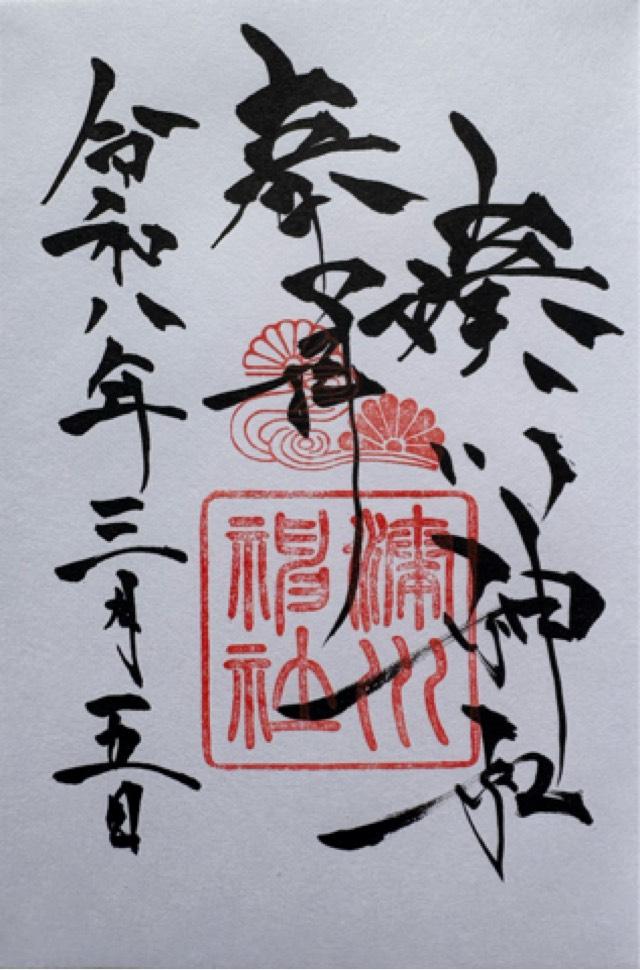 湊川神社
奉拝
湊川
神社
令和八年三月五日